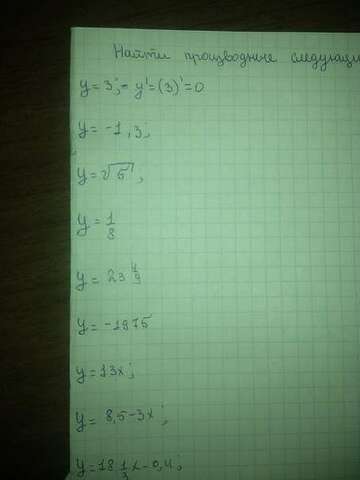 Найти производные следующи
y = 3; = y' = (3)' = 0
y = -1,3;
y = √5;
y = 1/8
y = 23 4/9
y = -1975
y = 13x;
y = 8,5-3x;
y = 18 1/3 x - 0,4;